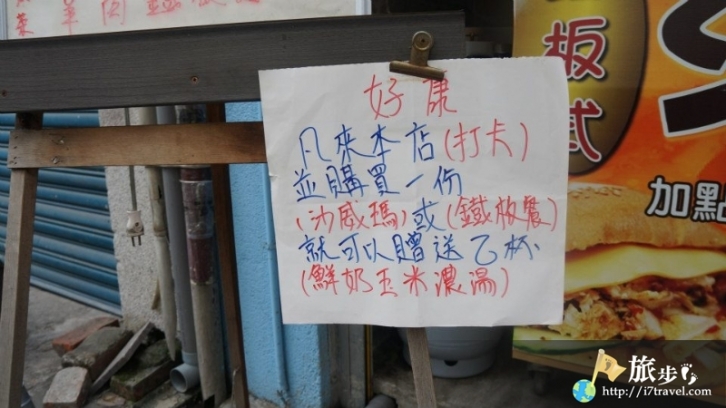 羊肉
好康
凡來本店(打卡)
並購買一份
(沙威瑪)或(鐵板農)
就可以贈送乙杯
(鮮奶玉米濃湯)
板
式
加點
旅步
http://i7travel.com